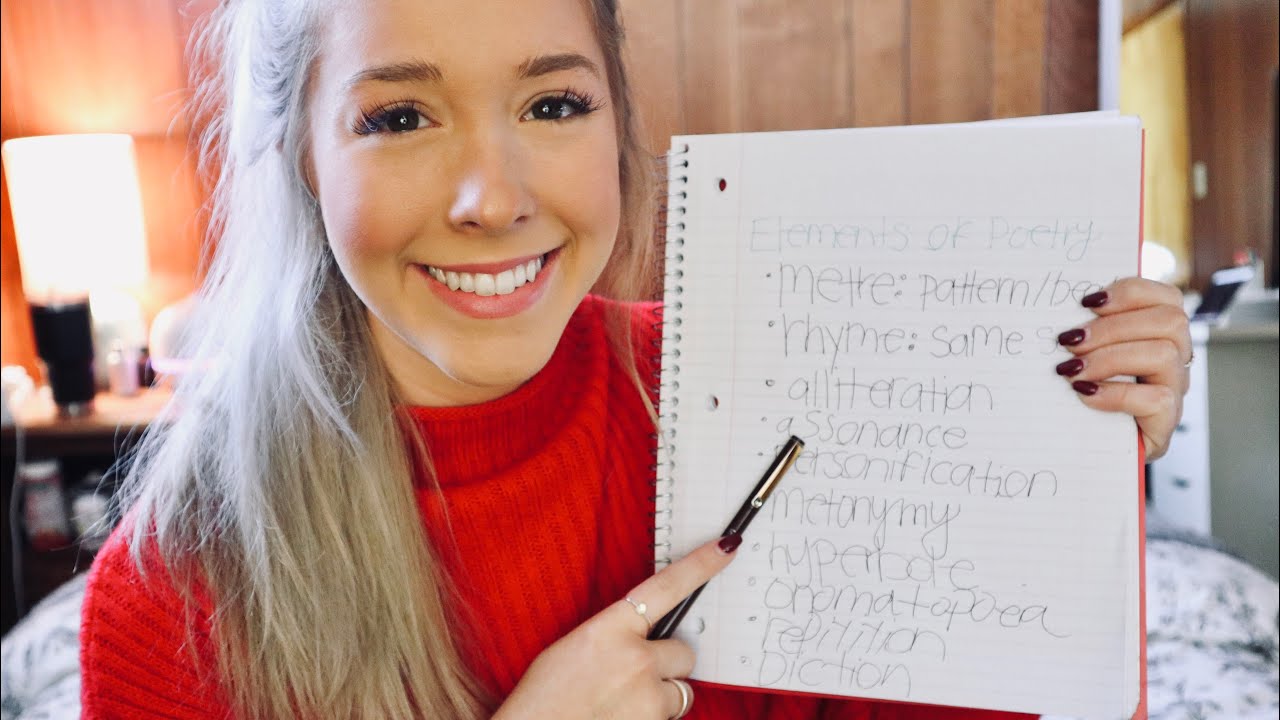 Elements of Poetry
• metre: pattern/bea
• rhyme: same s
• alliteration
• assonance
• personification
metonymy
• hyperbole
• onomatopoeia
• repitition
• Diction